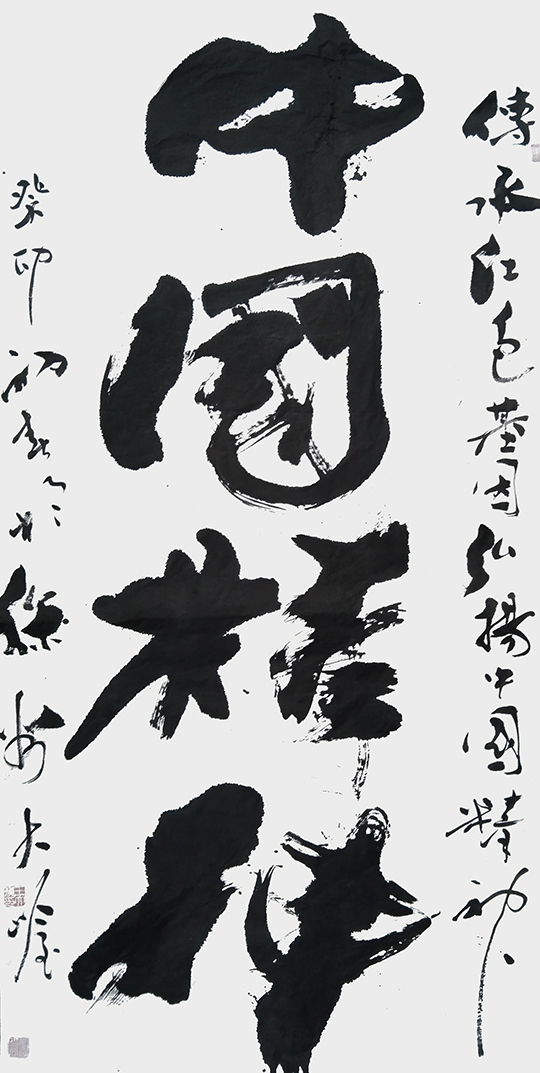 傳承紅色基因弘揚中國精神
中國精神
癸卯初春於